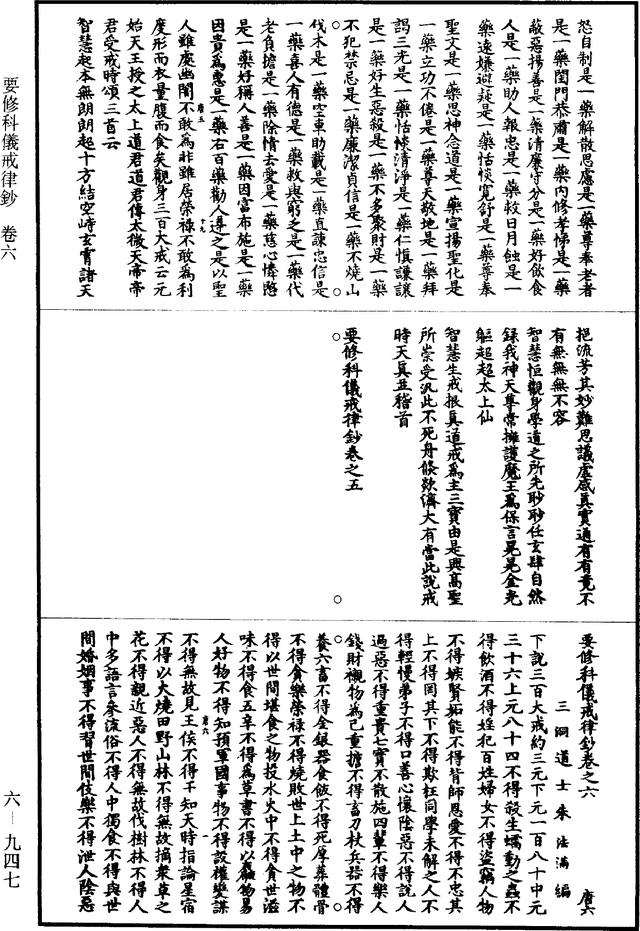 要修科儀戒律鈔 卷六
六－九四七
怒自制是一藥解散思慮是一藥尊奉老者
是一藥閨門恭肅是一藥內修孝悌是一藥
蔽惡揚善是一藥清廉守分是一藥好飲食
人是一藥助人報忠是一藥救日月蝕是一
藥遠嫌避疑是一藥恬惔寬舒是一藥尊奉
聖文是一藥思神念道是一藥宣揚聖化是
一藥立功不倦是一藥尊天敬地是一藥拜
謁三光是一藥恬惔清淨是一藥仁慎謙讓
是一藥好生惡殺是一藥不多聚財是一藥
不犯禁忌是一藥廉潔貞信是一藥不燒山
伐木是一藥空車助載是一藥直諫忠信是
一藥喜人有德是一藥救與窮乏是一藥代
老負擔是一藥除情去愛是一藥慈心憐愍
是一藥好稱人善是一藥因富布施是一藥
因貴爲惠是一藥右百藥勸人遵之是以聖
唐五 十九
人雖處幽闇不敢爲非雖居榮祿不敢爲利
度形而衣量腹而食矣觀身三百大戒云元
始天王授之太上道君道君傳太微天帝帝
君受戒時頌三首云
智慧起本無朗朗起十方結空峙玄霄諸天
挹流芳其妙難思議虛感眞實通有有竟不
有無無無不容
智慧恒觀身學道之所先眇眇任玄肆自然
錄我神天尊常擁護魔王爲保言晃晃金光
軀超超太上仙
智慧生戒根眞道戒爲主三寶由是興高聖
所崇受汎此不死舟倏欻濟大有當此說戒
時天眞並稽首
要修科儀戒律鈔卷之五
要修科儀戒律鈔卷之六 唐六
三洞道士朱法滿編
下說三百大戒約三元下元一百八十中元
三十六上元八十四不得殺生蠕動之蟲不
得飲酒不得婬犯百姓婦女不得盜竊人物
不得嫉賢妬能不得背師恩愛不得不忠其
上不得罔其下不得欺枉同學未解之人不
得輕慢弟子不得口善心懷陰惡不得說人
過惡不得重貴七寶不散施四輩不得樂人
錢財襯物爲己重擔不得畜刀杖兵器不得
養六畜不得金銀器食飲不得死厚葬體骨
不得貪樂榮祿不得燒敗世上土中之物不
得以世間堪食之物投水火中不得貪世滋
味不得食五辛不得爲草書不得以麤物易
人好物不得知預軍國事物不得設權變謀
唐六 一
不得無故見王侯不得干知天時指論星宿
不得以火燒田野山林不得無故摘衆草之
花不得觀近惡人不得無故伐樹林不得人
中多語言參流俗不得人中獨食不得與世
間婚姻事不得習世間伎樂不得泄人陰惡